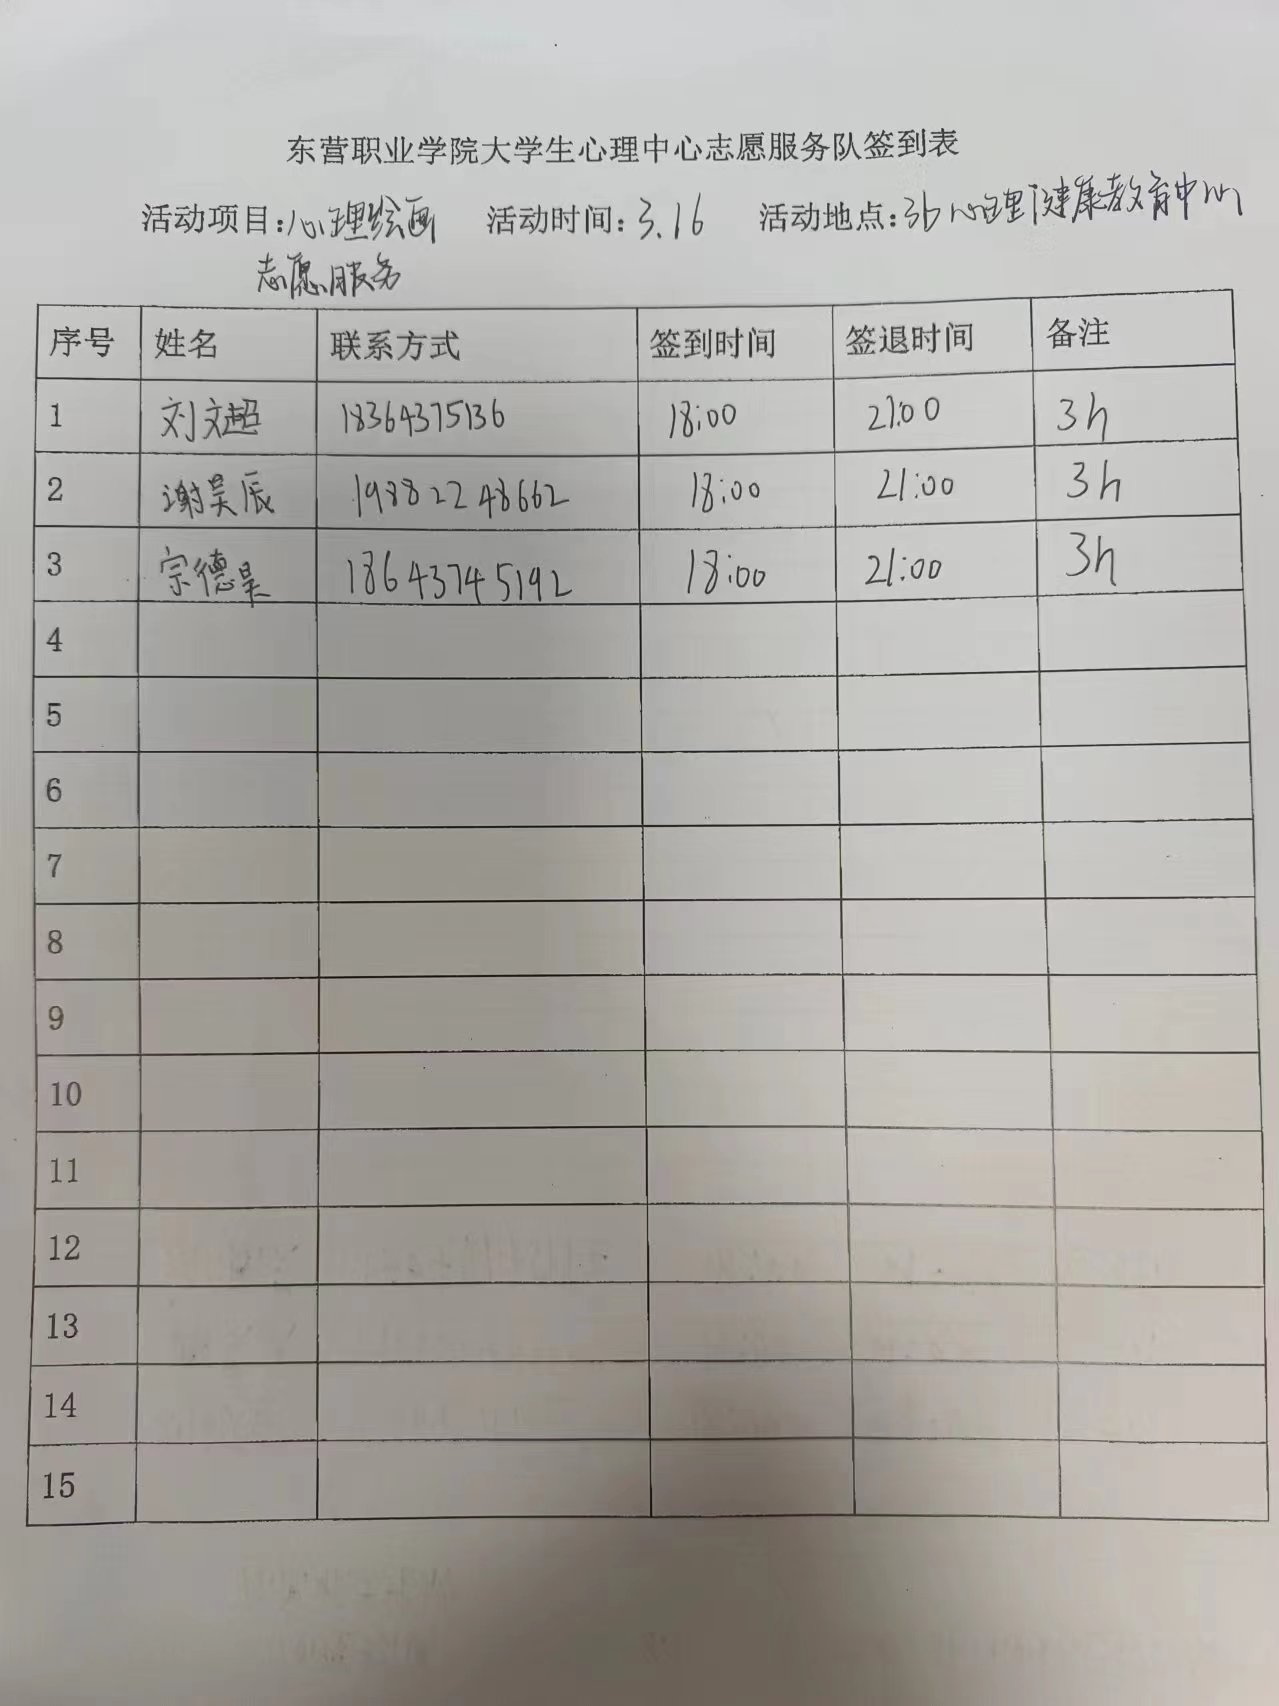 东营职业学院大学生心理中心志愿服务队签到表
活动项目:心理绘画 活动时间:3.16 活动地点:3b心理健康教育中心
志愿服务
序号 姓名 联系方式 签到时间 签退时间 备注
1 刘文超 18364375136 18:00 21:00 3h
2 谢昊辰 19882248662 18:00 21:00 3h
3 宗德昊 18643745192 18:00 21:00 3h
4
5
6
7
8
9
10
11
12
13
14
15